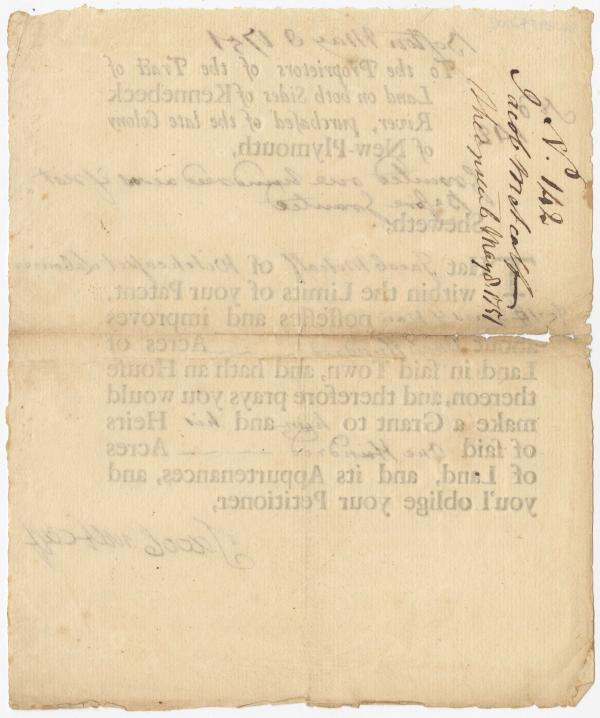 N. 142
Jacob Metcalf
May 8. 1751
Boston May 8 1751
To the Proprietors of the Tract of
Land on both Sides of Kennebeck
River, purchased of the late Colony
of New-Plymouth,
Granted one hundred acres
Before Granted
Sheweth,
That Jacob Metcalf of
within the Limits of your Patent,
possesses and improves
about One Hundred Acres of
Land in said Town, and hath an House
thereon, and therefore prays you would
make a Grant to him and his Heirs
of said One Hundred Acres
of Land, and its Appurtenances, and
you'l oblige your Petitioner,
Jacob Metcalf